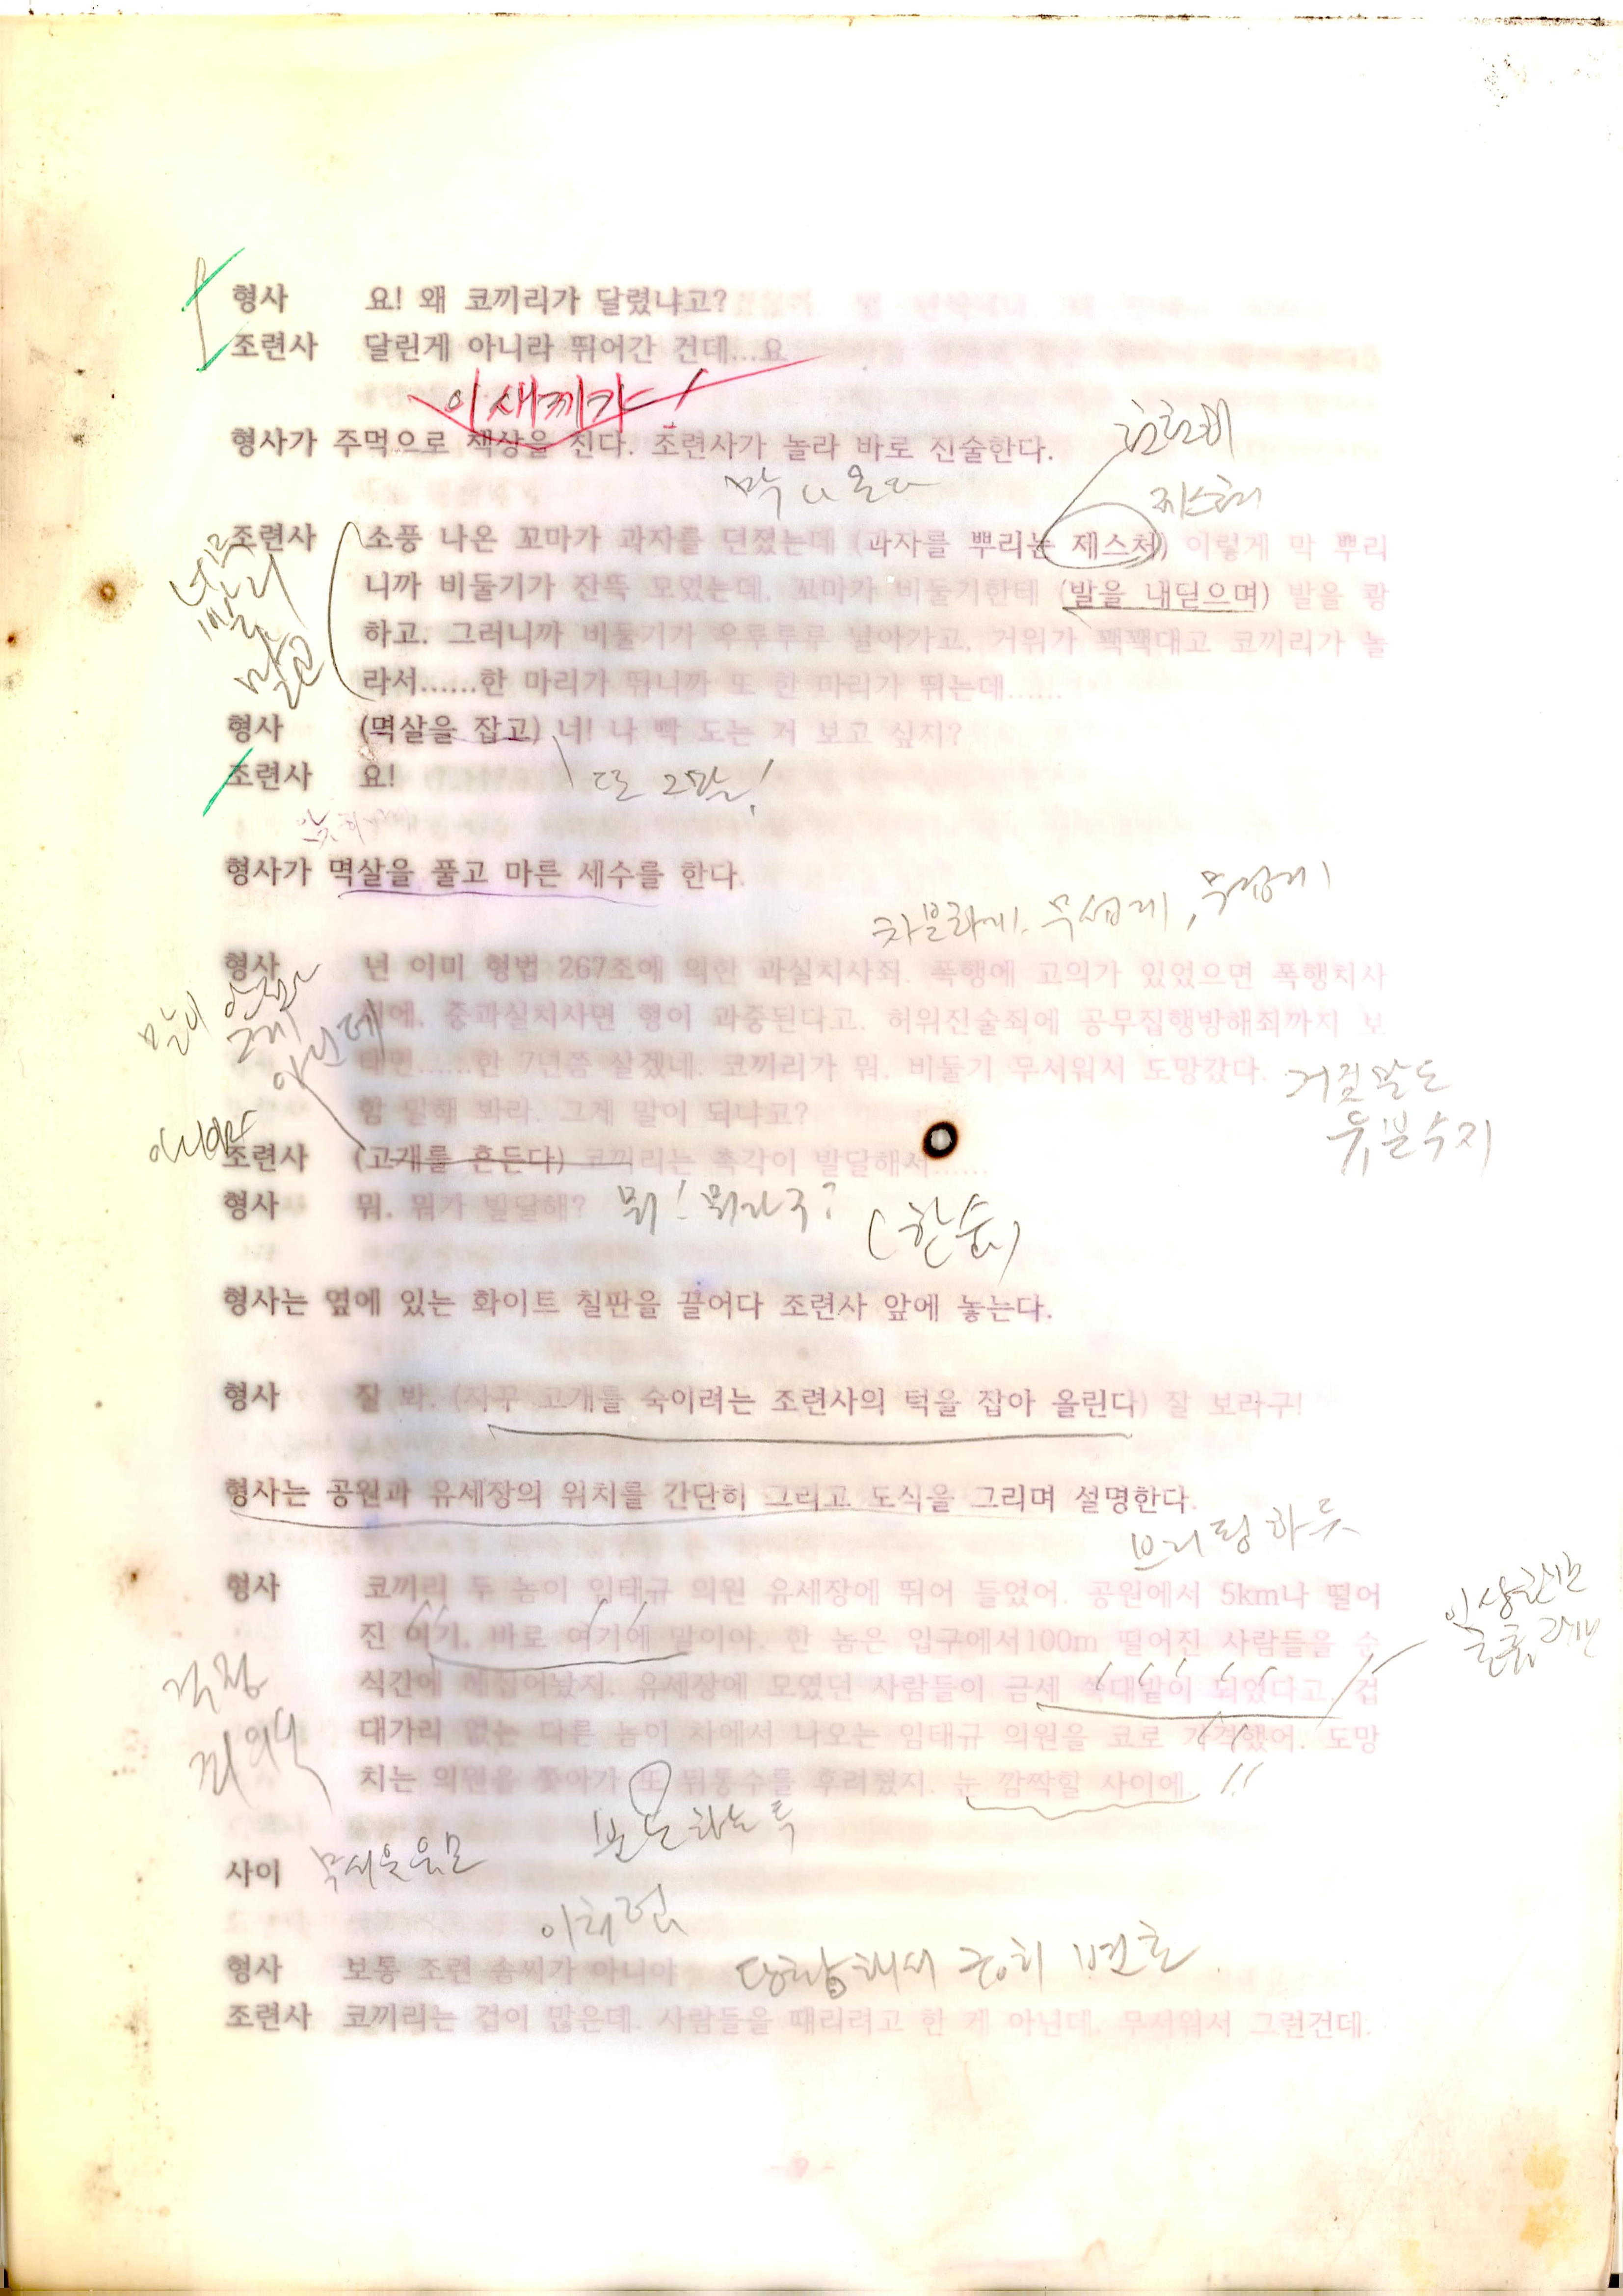 형사 요! 왜 코끼리가 달렸냐고?
조련사 달린게 아니라 뛰어간 건데...요
이새끼가!
형사가 주먹으로 책상을 친다. 조련사가 놀라 바로 진술한다.
제스처
조련사 소풍 나온 꼬마가 과자를 던졌는데 (과자를 뿌리는 제스처) 이렇게 막 뿌리
니까 비둘기가 잔뜩 모였는데, 꼬마가 비둘기한테 (발을 내딛으며) 발을 쾅
하고. 그러니까 비둘기가 우루루루 날아가고, 거위가 꽥꽥대고 코끼리가 놀
라서......한 마리가 뛰니까 또 한 마리가 뛰는데......
형사 (멱살을 잡고) 너! 나 빡 도는 거 보고 싶지?
조련사 요!
또 그말!
형사가 멱살을 풀고 마른 세수를 한다.
차분하게, 무섭게,
형사 넌 이미 형법 267조에 의한 과실치사죄. 폭행에 고의가 있었으면 폭행치사
에, 중과실치사면 형이 과중된다고. 허위진술죄에 공무집행방해죄까지 보
태면......한 7년쯤 살겠네. 코끼리가 뭐, 비둘기 무서워서 도망갔다.
거짓말도
유분수지
함 말해 봐라. 그게 말이 되냐고?
조련사 (고개를 흔든다) 코끼리는 촉각이 발달해서......
형사 뭐, 뭐가 발달해?
뭐! 뭐라구?
(한숨)
형사는 옆에 있는 화이트 칠판을 끌어다 조련사 앞에 놓는다.
형사 잘 봐. (자꾸 고개를 숙이려는 조련사의 턱을 잡아 올린다) 잘 보라구!
형사는 공원과 유세장의 위치를 간단히 그리고 도식을 그리며 설명한다.
브리핑하듯
형사 코끼리 두 놈이 임태규 의원 유세장에 뛰어 들었어. 공원에서 5km나 떨어
진 여기, 바로 여기에 말이야. 한 놈은 입구에서100m 떨어진 사람들을 순
식간에 헤집어놨지. 유세장에 모였던 사람들이 금세 쑥대밭이 되었다고. 겁
대가리 없는 다른 놈이 차에서 나오는 임태규 의원을 코로 가격했어. 도망
치는 의원을 쫓아가 또 뒤통수를 후려쳤지. 눈 깜짝할 사이에.
사이
형사 보통 조련 솜씨가 아니야
조련사 코끼리는 겁이 많은데. 사람들을 때리려고 한 게 아닌데, 무서워서 그런건데.
- 9 -